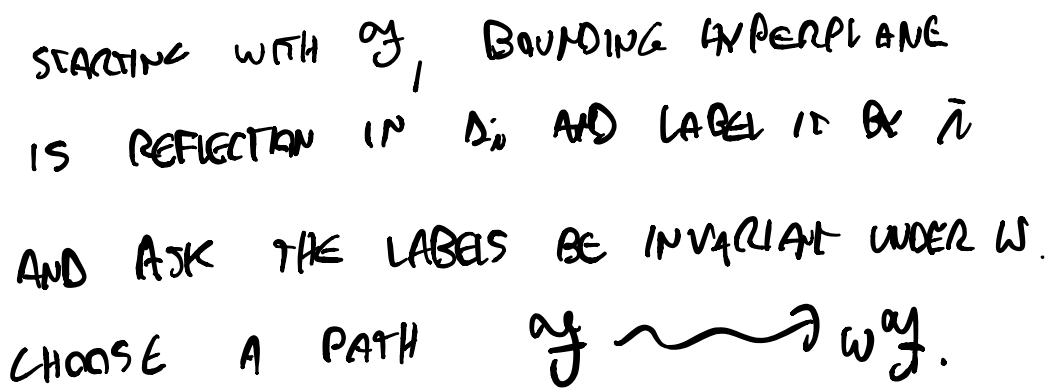 STARTING WITH , BOUNDING HYPERPLANE
IS REFLECTION IN sᵢ, AND LABEL IT BY i
AND ASK THE LABELS BE INVARIANT UNDER W.
CHOOSE A PATH ⇝ w .